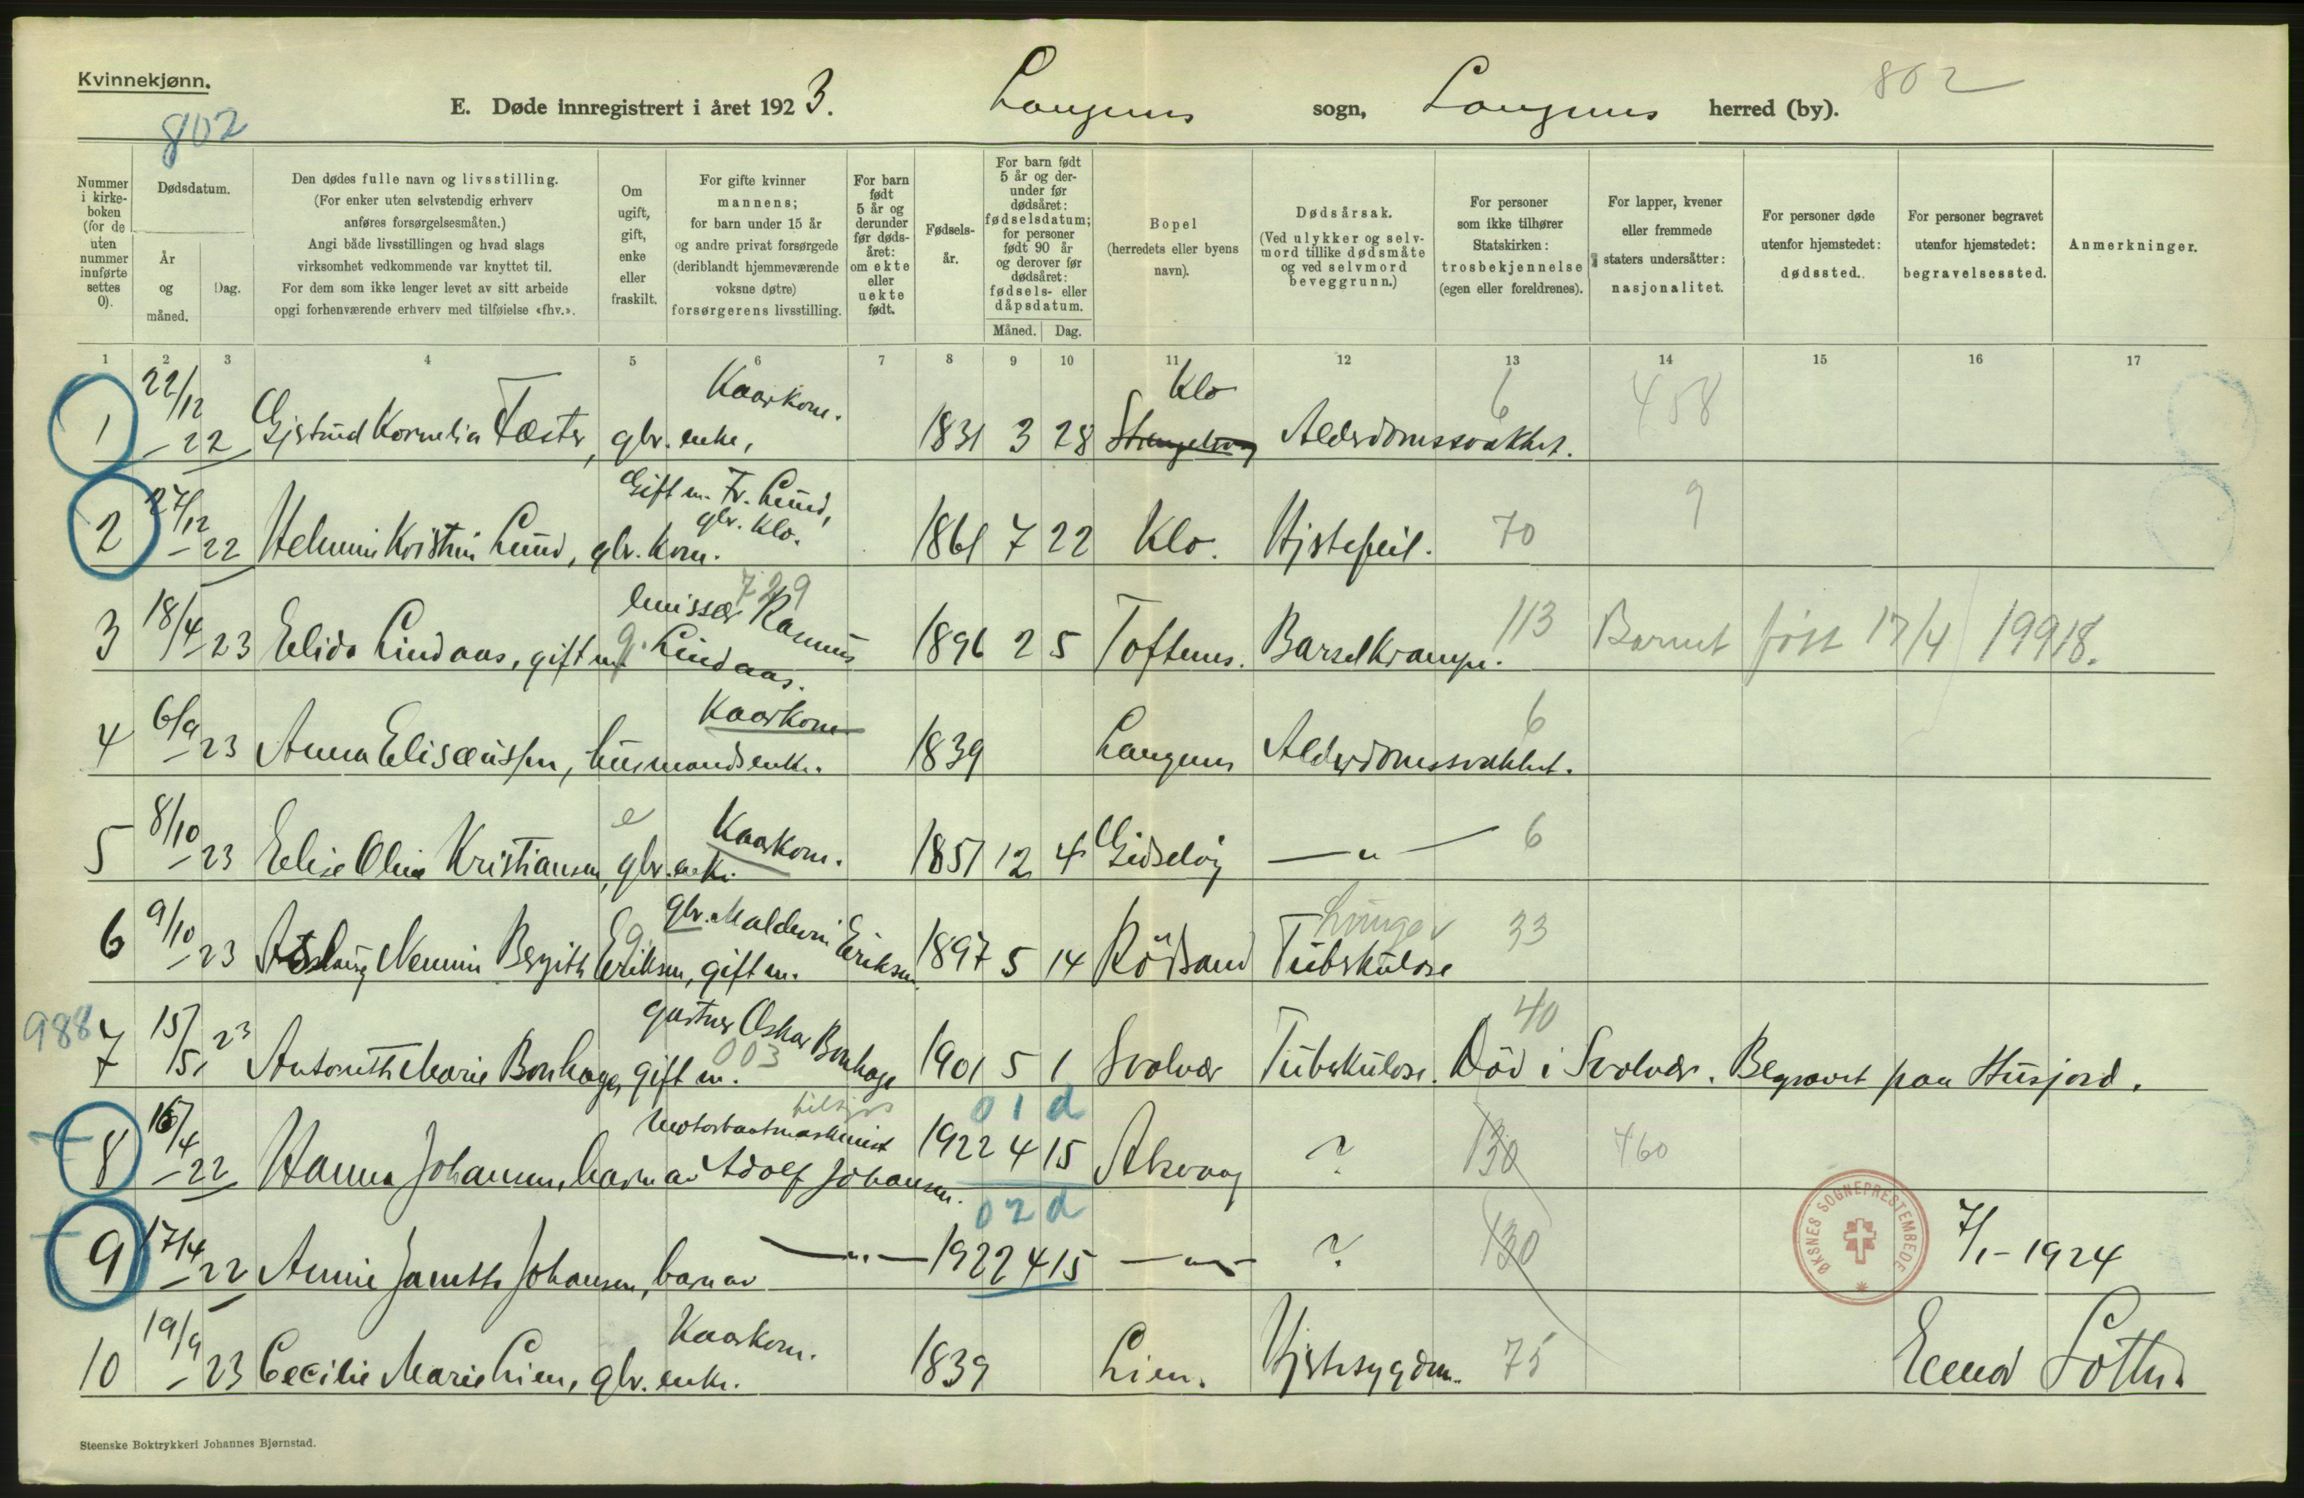 Kvinnekjønn.
802
E. Døde innregistrert i året 1923. Langenes sogn, Langenes herred (by). 802
Nummer i kirkeboken (for de uten nummer innførte settes 0).
Dødsdatum.
År og måned.
Dag.
Den dødes fulle navn og livsstilling.
(For enker uten selvstendig erhverv
anføres forsørgelsesmåten.)
Angi både livsstillingen og hvad slags
virksomhet vedkommende var knyttet til.
For dem som ikke lenger levet av sitt arbeide
opgi forhenværende erhverv med tilføielse «fhv.».
Om ugift, gift, enke eller fraskilt.
For gifte kvinner
mannens;
for barn under 15 år
og andre privat forsørgede
(deriblandt hjemmeværende
voksne døtre)
forsørgerens livsstilling.
For barn født 5 år og derunder før dødsåret: om ekte eller uekte født.
Fødselsår.
For barn født 5 år og derunder før dødsåret: fødselsdatum; for personer født 90 år og derover før dødsåret: fødsels- eller dåpsdatum.
Måned. Dag.
Bopel
(herredets eller byens
navn).
Dødsårsak.
(Ved ulykker og selvmord tillike dødsmåte
og ved selvmord
beveggrunn.)
For personer
som ikke tilhører
Statskirken:
trosbekjennelse
(egen eller foreldrenes).
For lapper, kvener
eller fremmede
staters undersåtter:
nasjonalitet.
For personer døde
utenfor hjemstedet:
dødssted.
For personer begravet
utenfor hjemstedet:
begravelsessted.
Anmerkninger.
1 2 3 4 5 6 7 8 9 10 11 12 13 14 15 16 17
1 22/12 - 22 Gjertrud Kornelia Fæster, gbr. enke, Kaarkone. 1831 3 28 Klo Alderdomssvakhet. 6 458
2 27/12 - 22 Helmine Kristine Lund, gbr. kone. Gift m. Fr. Lund, gbr. Klo. 1861 7 22 Klo. Hjertefeil. 70 9
3 18/4 - 23 Elida Lindaas, gift m. emissær Rasmus Lindaas. 729 1896 2 5 Toftenes. Barselkrampe. 113 Barnet født 17/4 19918.
4 6/9 - 23 Anna Elisæussen, husmandsenke. Kaarkone 1839 Langenes Alderdomssvakhet. 6
5 8/10 - 23 Elise Oline Kristiansen, gbr. enke. e Kaarkone. 1851 12 4 Gidsløy — " — 6
6 9/10 - 23 Aslaug Nemine Bergithe Eriksen, gift m. gbr. Maldvin Eriksen. 1897 5 14 Rödsand Tuberkulose Lunger 33
988 7 15/5 23 Antonette Marie Bonhage, gift m. gartner Oskar Bonhage 003 1901 5 1 Svolvær Tuberkulose. 40 Död i Svolvær. Begravet paa Husjord.
8 16/4 - 22 Hanna Johansen, barn av motorbaatmaskinist Adolf Johansen. 01d 1922 4 15 Alsvaag ? 130 460
9 17/4 - 22 Annie Janette Johansen, barn av — " — 02d 1922 4 15 — " — ? 130
10 19/9 - 23 Cecilie Marie Lien, gbr. enke. Kaarkone. 1839 Lien. Hjertesygdom. 75
ØKSNES SOGNEPRESTEMBEDE
7/1 - 1924
Steenske Boktrykkeri Johannes Bjørnstad.